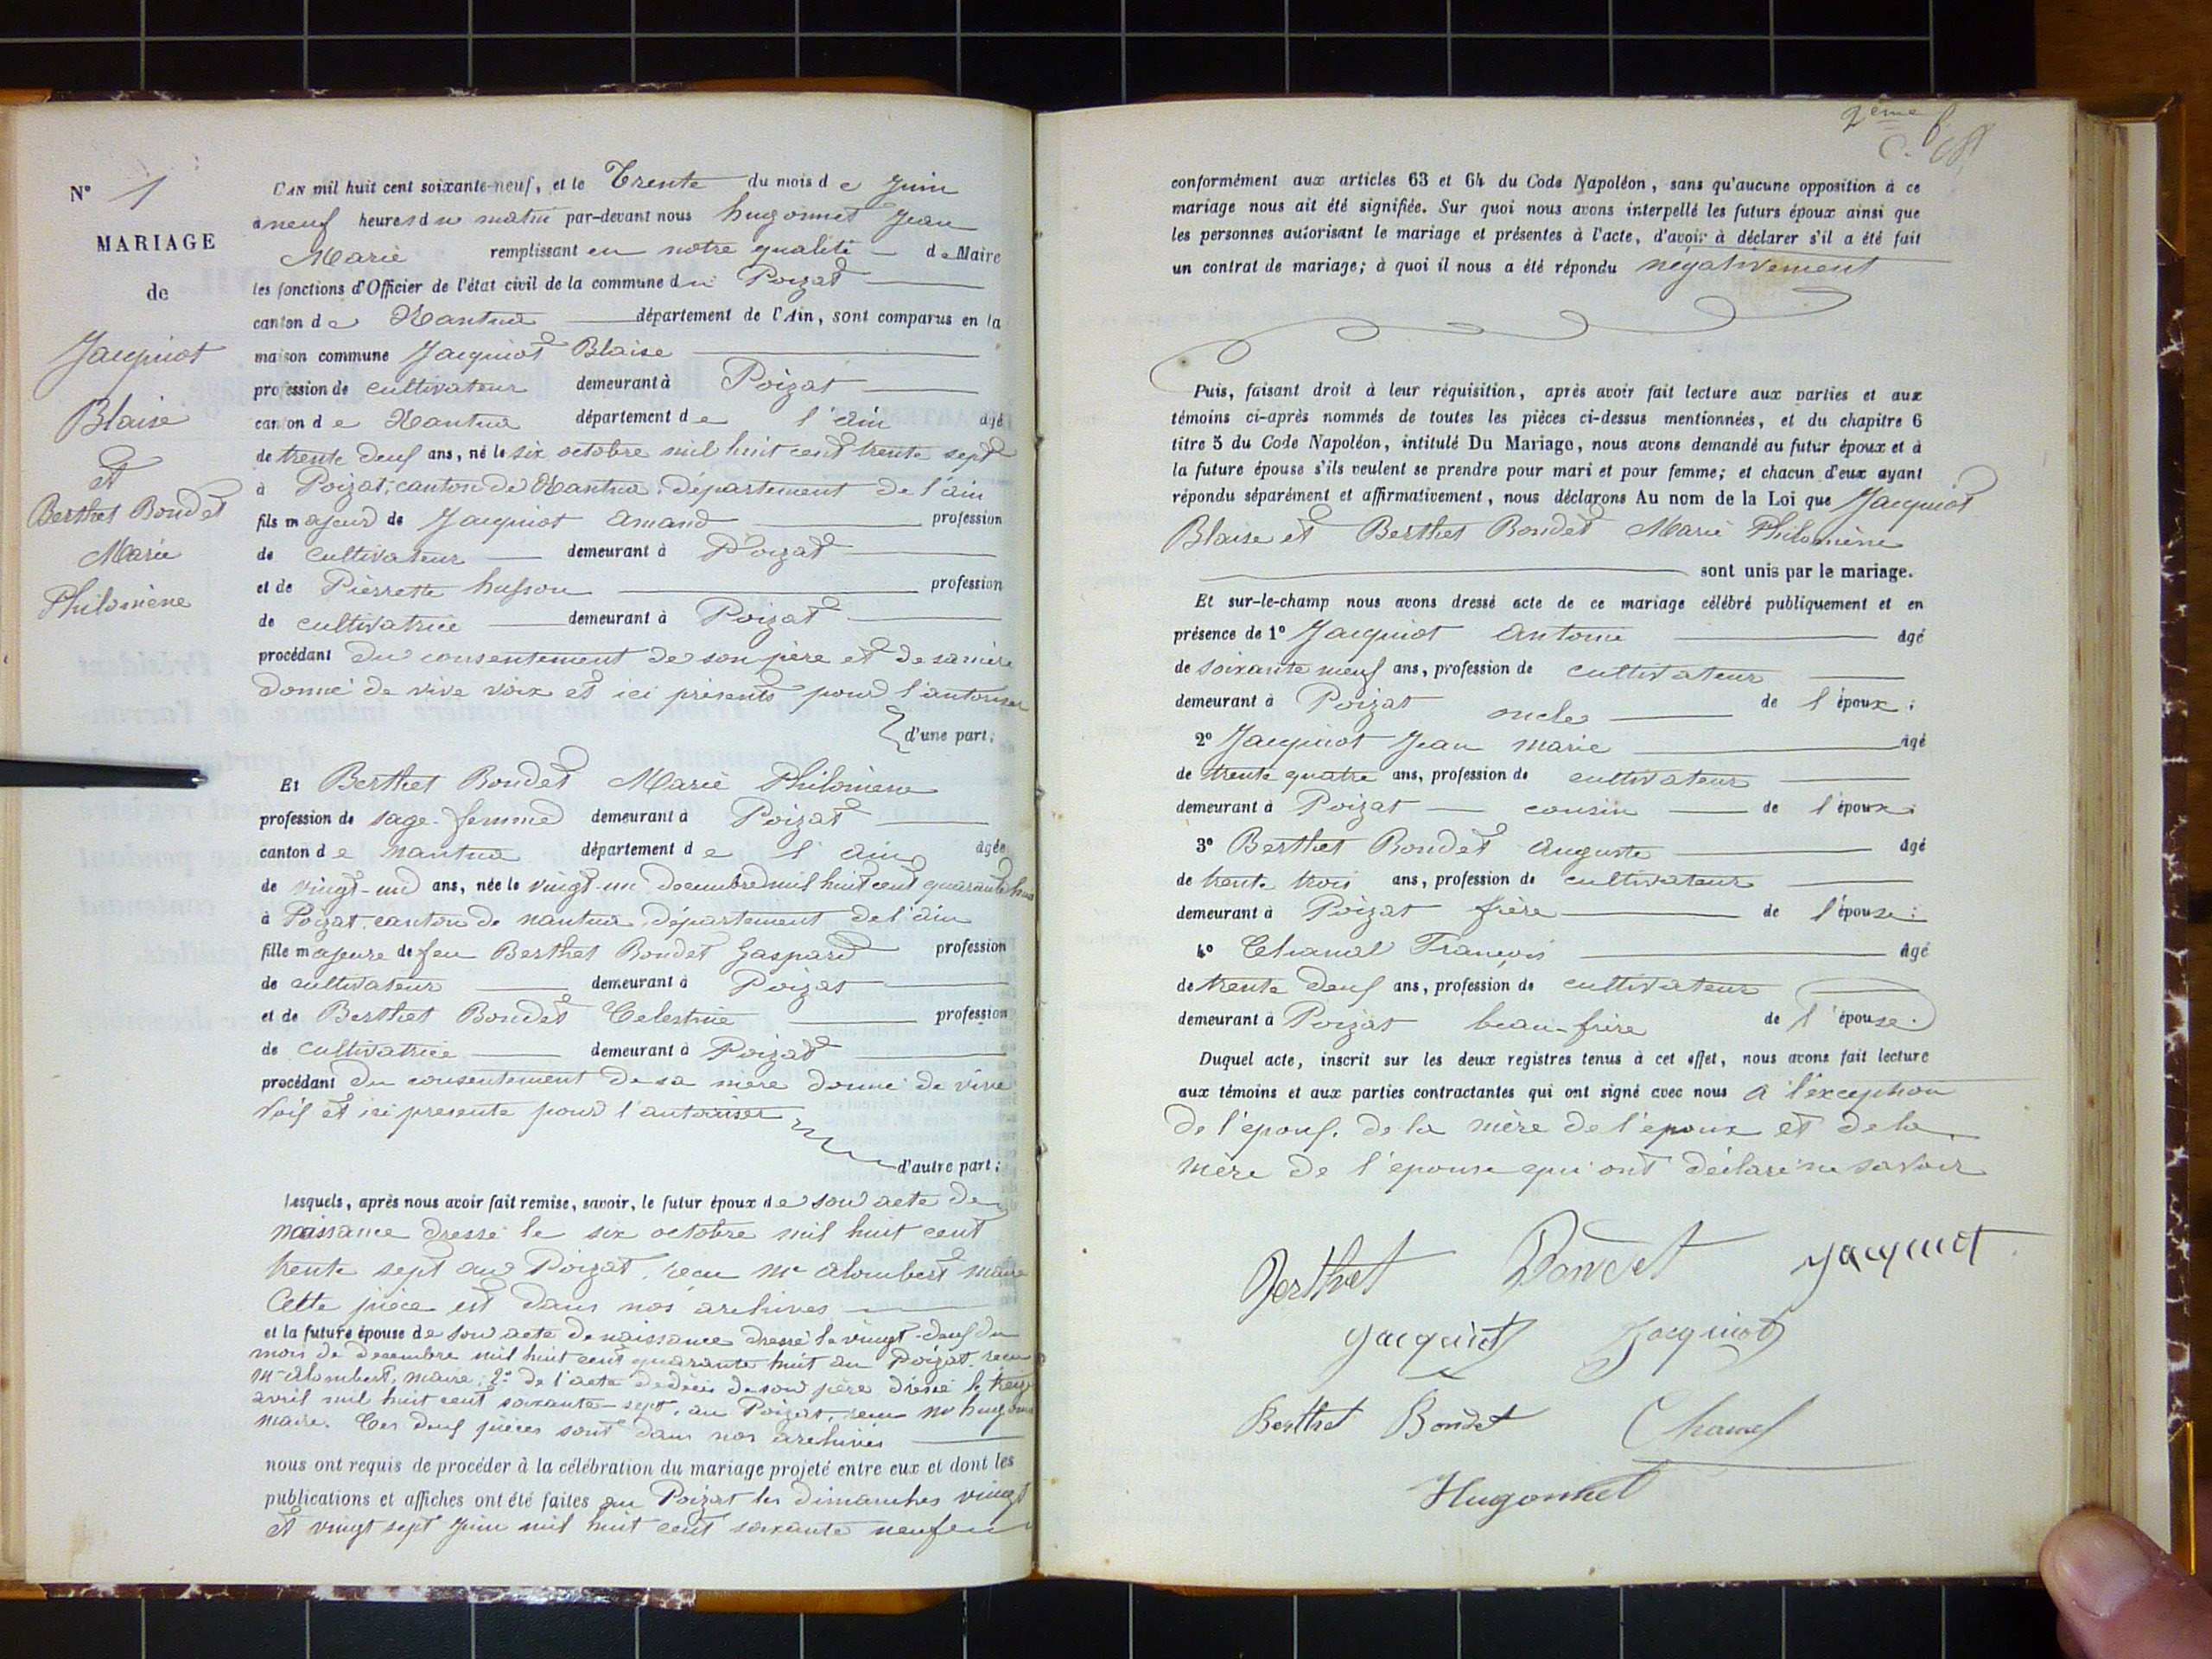 N° 1
MARIAGE
de
Jacquiot
Blaise
et
Berthet Bondet
Marie
Philomène
L'AN mil huit cent soixante-neuf, et le Trente du mois de Juin
à neuf heures du matin par-devant nous hugonnet Jean
Marie remplissant en notre qualité de Maire
les fonctions d'Officier de l'état civil de la commune du Poizat
canton de Nantua département de l'Ain, sont comparus en la
maison commune Jacquiot Blaise
profession de cultivateur demeurant à Poizat
canton de Nantua département de l'ain agé
de trente deuf ans, né le six octobre mil huit cent trente sept
à Poizat, canton de Nantua, département de l'ain
fils majeur de Jacquiot Amand profession
de cultivateur demeurant à Poizat
et de Pierrette husson profession
de cultivatrice demeurant à Poizat
procédant du consentement de son père et de sa mère
donné de vive voix et ici présents pour l'autoriser
d'une part;
Et Berthet Bondet Marie Philomène
profession de sage-femme demeurant à Poizat
canton de nantua département de l'ain agée
de vingt-un ans, née le vingt-un decembre mil huit cent quarante huit
à Poizat, canton de nantua, département de l'ain
fille majeure de feu Berthet Bondet Gaspard profession
de cultivateur demeurant à Poizat
et de Berthet Bondet Celestine profession
de cultivatrice demeurant à Poizat
procédant du consentement de sa mère donné de vive
voif et ici presente pour l'autoriser
d'autre part;
Lesquels, après nous avoir fait remise, savoir, le futur époux de son acte de
naissance dressé le six octobre mil huit cent
trente sept au Poizat, recu Mr Alombert maire
Cette pièce est dans nos archives
et la future épouse de son acte de naissance dressé le vingt-deuf du
mois de decembre mil huit cent quarante huit au Poizat, recu
Mr alombert, maire; 2° de l'acte de décès de son père dressé le
avril mil huit cent soixante-sept, au Poizat, recu Mr hugonnet
maire. Ces deuf pièces sont dans nos archives
nous ont requis de procéder à la célébration du mariage projeté entre eux et dont les
publications et affiches ont été faites au Poizat les dimanches vingt
et vingt sept Juin mil huit cent soixante neuf
2eme
conformément aux articles 63 et 64 du Code Napoléon, sans qu'aucune opposition à ce
mariage nous ait été signifiée. Sur quoi nous avons interpellé les futurs époux ainsi que
les personnes autorisant le mariage et présentes à l'acte, d'avoir à déclarer s'il a été fait
un contrat de mariage; à quoi il nous a été répondu négativement
Puis, faisant droit à leur réquisition, après avoir fait lecture aux parties et aux
témoins ci-après nommés de toutes les pièces ci-dessus mentionnées, et du chapitre 6
titre 5 du Code Napoléon, intitulé Du Mariage, nous avons demandé au futur époux et à
la future épouse s'ils veulent se prendre pour mari et pour femme; et chacun d'eux ayant
répondu séparément et affirmativement, nous déclarons Au nom de la Loi que Jacquiot
Blaise et Berthet Bondet Marie Philomène
sont unis par le mariage.
Et sur-le-champ nous avons dressé acte de ce mariage célébré publiquement et en
présence de 1° Jacquiot Antoine agé
de soixante neuf ans, profession de cultivateur
demeurant à Poizat oncle de l'époux;
2° Jacquiot Jean marie agé
de trente quatre ans, profession de cultivateur
demeurant à Poizat cousin de l'époux;
3° Berthet Bondet Auguste agé
de trente trois ans, profession de cultivateur
demeurant à Poizat frère de l'épouse;
4° Chanal François agé
de trente deuf ans, profession de cultivateur
demeurant à Poizat beau-frère de l'épouse.
Duquel acte, inscrit sur les deux registres tenus à cet effet, nous avons fait lecture
aux témoins et aux parties contractantes qui ont signé avec nous à l'exception
de l'épouf. de la mère de l'époux et de la
mère de l'épouse qui ont déclaré ne savoir
Berthet Bondet Jacquiot
Jacquiot Jacquiot
Berthet Bondet Chanel
Hugonnet